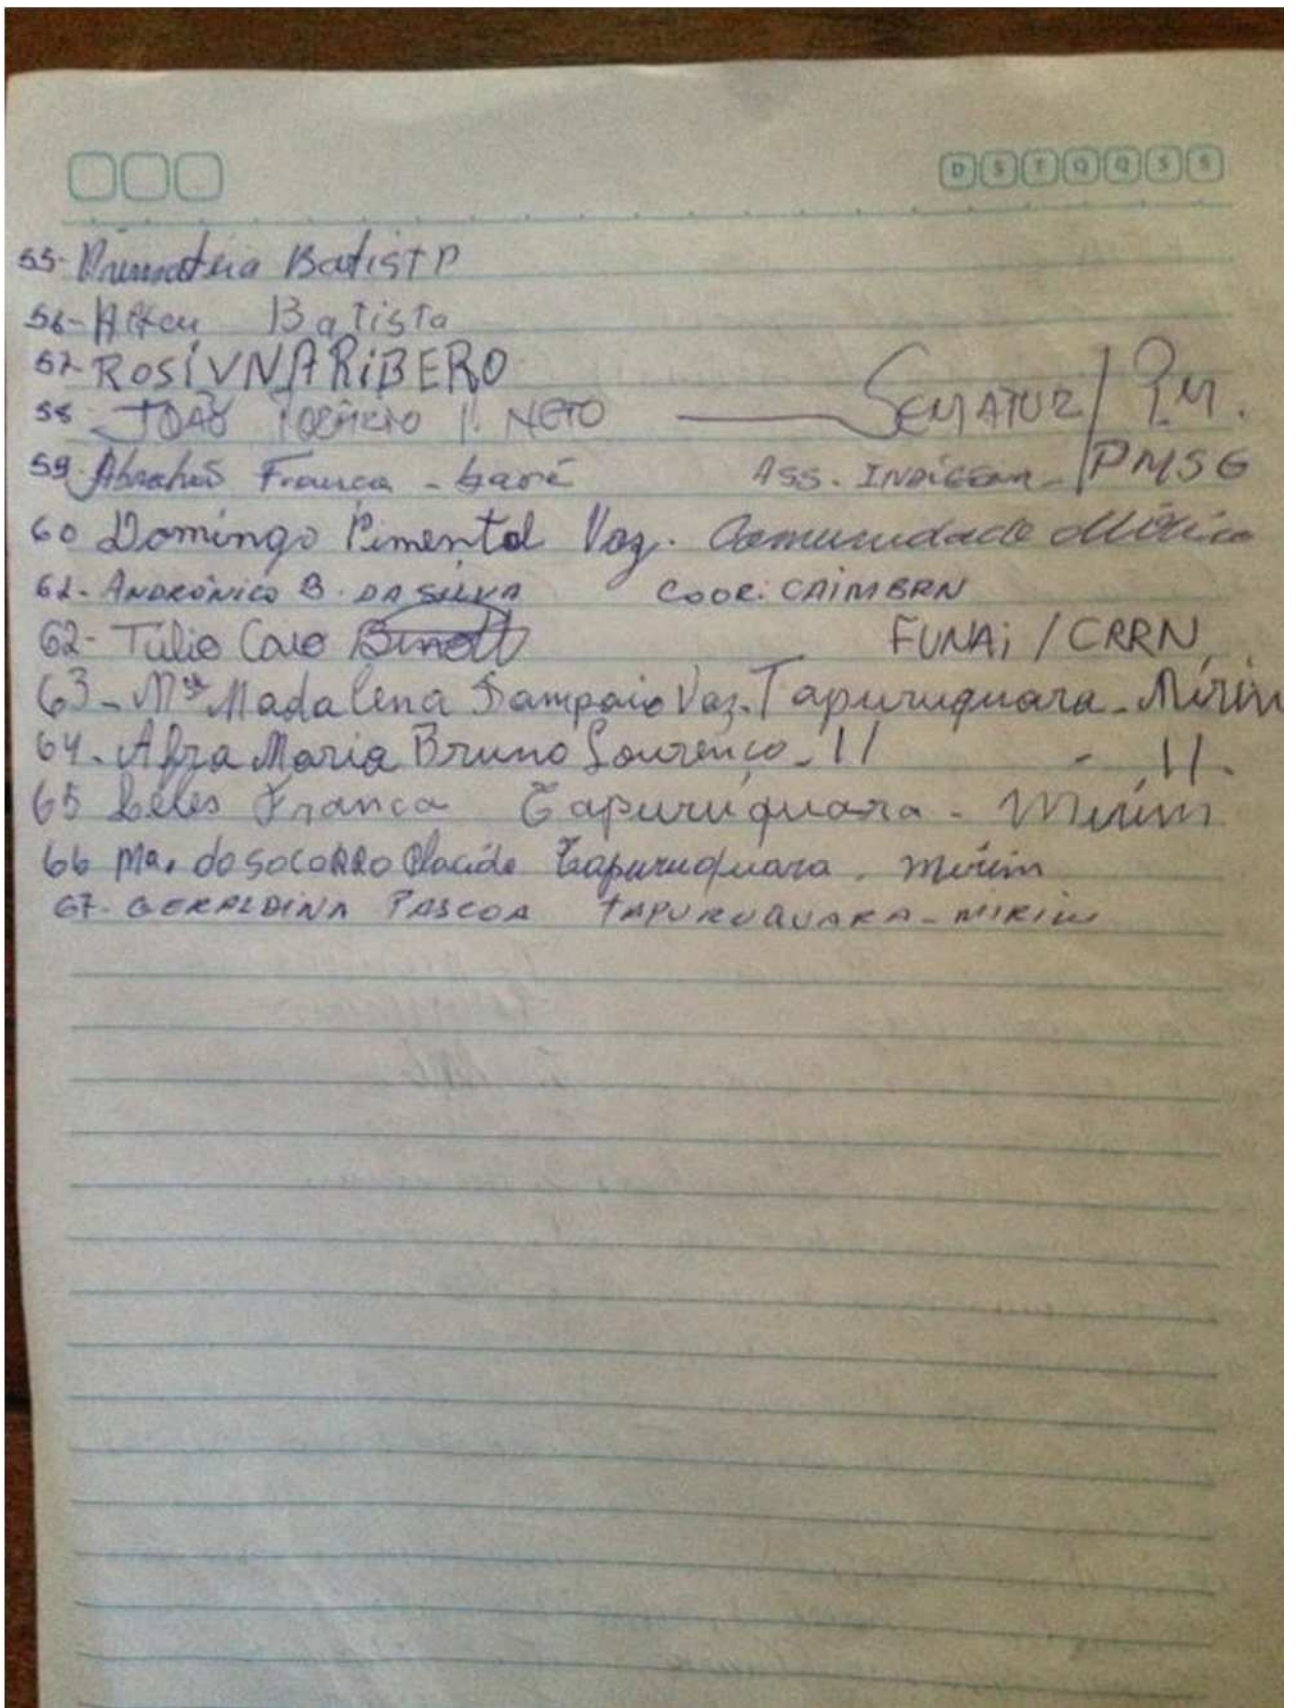 D S T Q Q S S
55- Batista
56- Batista
57- ROSÍVNA RIBERO
58- JOÃO NETO SEMATUR / P.M.
59- França - baré ASS. INDÍGENA - PMSG
60 Domingo Pimentel Vaz. Comunidade
61- ANDRÔNICO B. DA SILVA COOR: CAIMBRN
62- Túlio Caio Binotti FUNAi / CRRN
63- Mª Madalena Sampaio Vaz. Tapuruquara - Mirin
64- Afra Maria Bruno Lourenço - 11 - 11.
65 França Tapuruquara - Mirim
66 Ma. do SOCORRO Placido Tapuruquara - mirim
67- GERALDINA PASCOA TAPURUQUARA - MIRIM